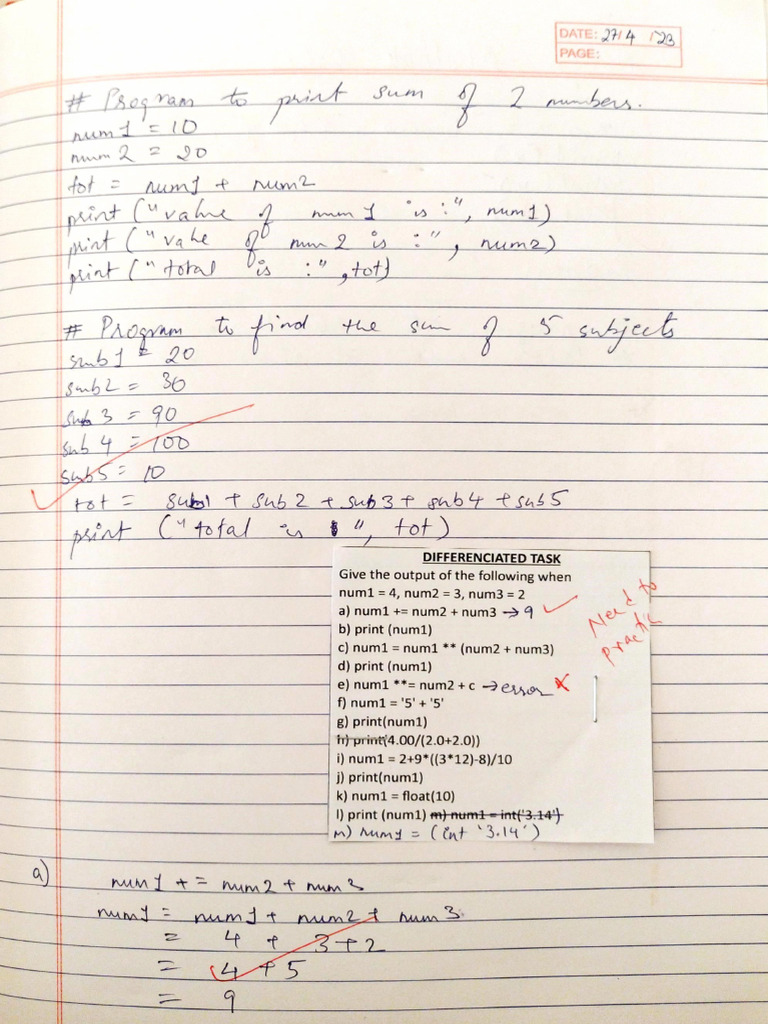 DATE: 27/4/23
PAGE:
# Program to print sum of 2 numbers.
num1 = 10
num2 = 20
tot = num1 + num2
print ("value of num1 is :", num1)
print ("vale of num2 is :", num2)
print ("total is :", tot)
# Program to find the sum of 5 subjects
sub1 = 20
sub2 = 30
sub3 = 90
sub4 = 100
sub5 = 10
tot = sub1 + sub2 + sub3 + sub4 + sub5
print ("total is :", tot)
DIFFERENCIATED TASK
Give the output of the following when
num1 = 4, num2 = 3, num3 = 2
a) num1 += num2 + num3 → 9
b) print (num1)
c) num1 = num1 ** (num2 + num3)
d) print (num1)
e) num1 **= num2 + c → error
f) num1 = '5' + '5'
g) print(num1)
h) print(4.00/(2.0+2.0))
i) num1 = 2+9*((3*12)-8)/10
j) print(num1)
k) num1 = float(10)
l) print (num1) m) num1 = int('3.14')
m) num1 = (int '3.14')
Need to
practic
a) num1 += num2 + num3
num1 = num1 + num2 + num3
= 4 + 3+2
= 4 + 5
= 9